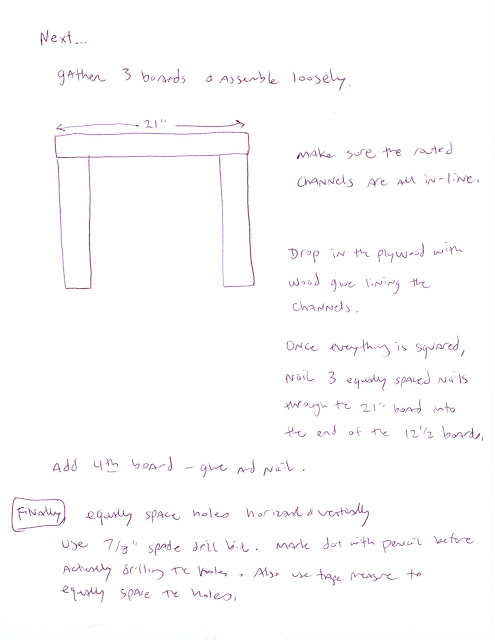 Next...
gather 3 boards & assemble loosely.
21"
make sure the routed
channels are all in-line.
Drop in the plywood with
wood glue lining the
channels.
Once everything is squared,
nail 3 equally spaced nails
through the 21" board into
the end of the 12 1/2 boards.
Add 4th board - glue and nail.
Finally, equally space holes horizontal & vertically
Use 7/8" spade drill bit. Mark dot with pencil before
actually drilling the holes. Also use tape measure to
equally space the holes.